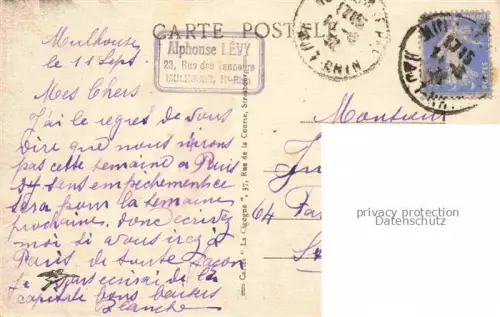 CARTE POSTALE
Alphonse LÉVY
23, Rue des Tanneurs
MULHOUSE, Ht-Rhin
Mulhouse
le 11 Sept.
Mes Chers
J'ai le regret de vous
dire que nous n'irons
pas cette semaine à Paris
sans empêchement ce
sera pour la semaine
prochaine. donc écrivez
moi si vous irez à
Paris, de toute façon
je vous écrirai de la
capitale bons baisers
Blanche
"La Cigogne", 37, Rue de la Course, Strasbourg
Monsieur
64
privacy protection
Datenschutz